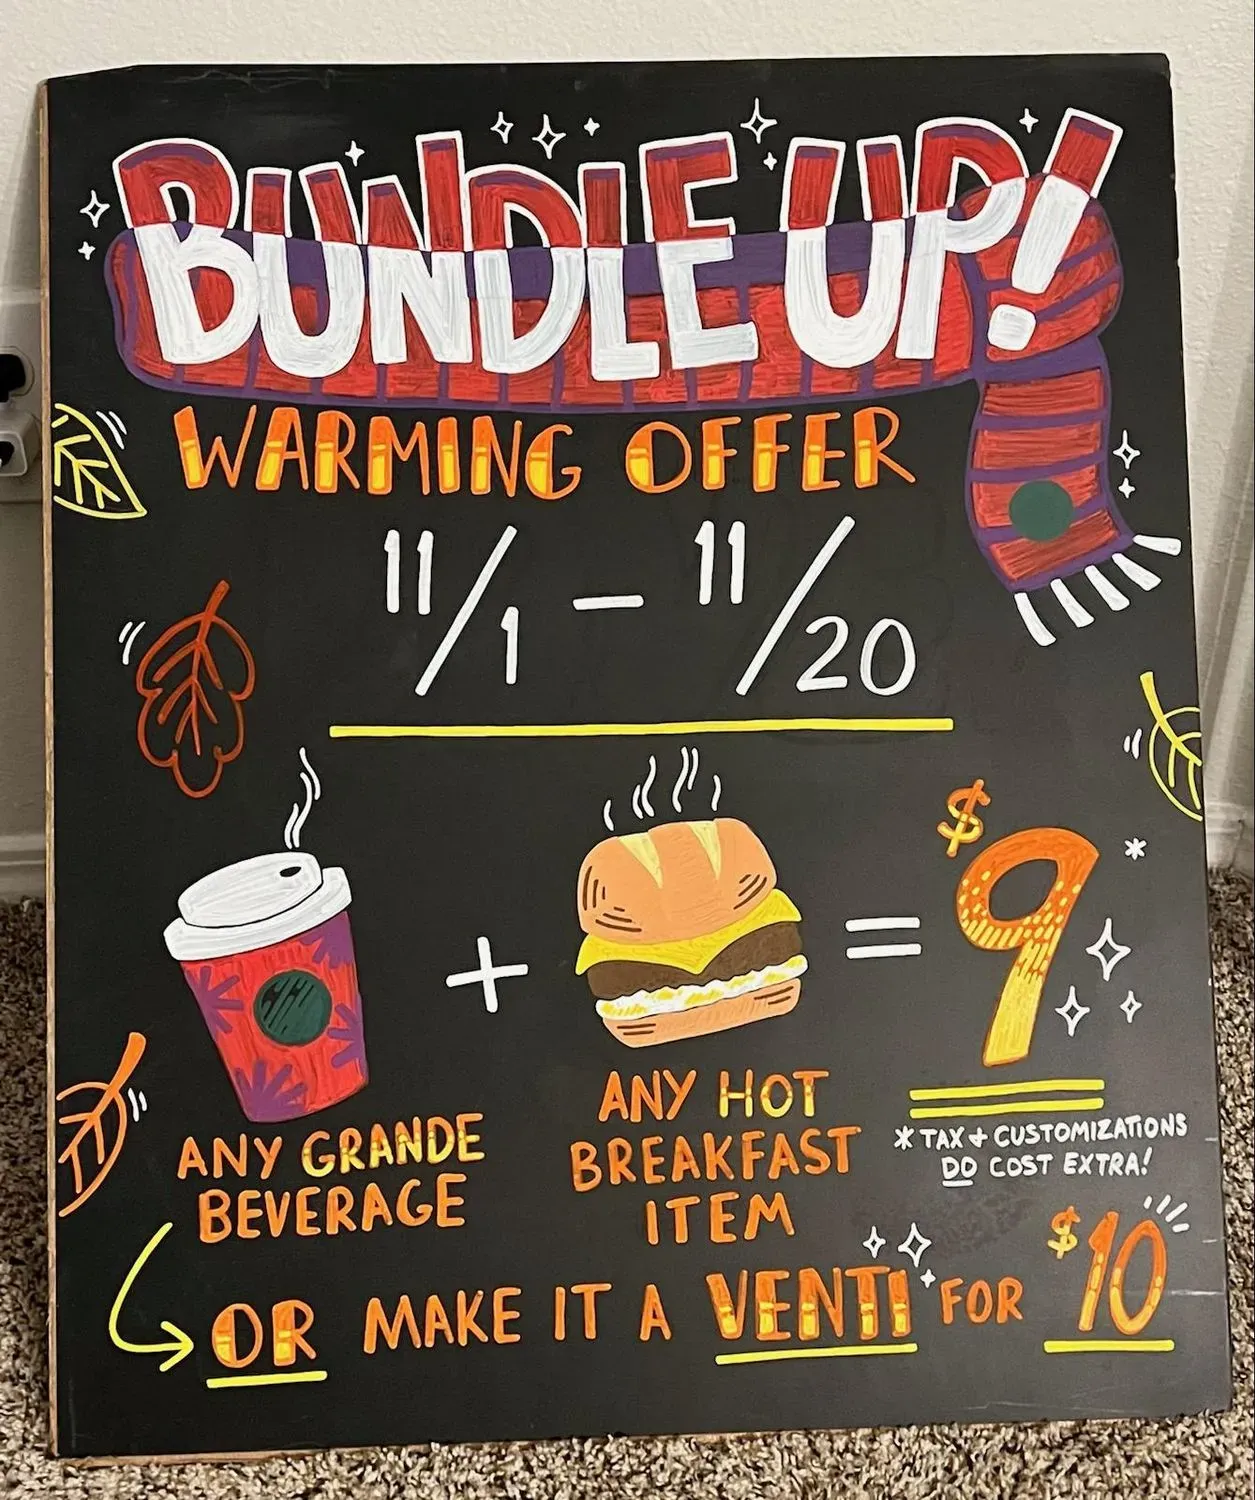 BUNDLE UP!
WARMING OFFER
11/1 - 11/20
+ = $9*
ANY GRANDE
BEVERAGE
ANY HOT
BREAKFAST
ITEM
* TAX + CUSTOMIZATIONS
DO COST EXTRA!
OR MAKE IT A VENTI FOR $10